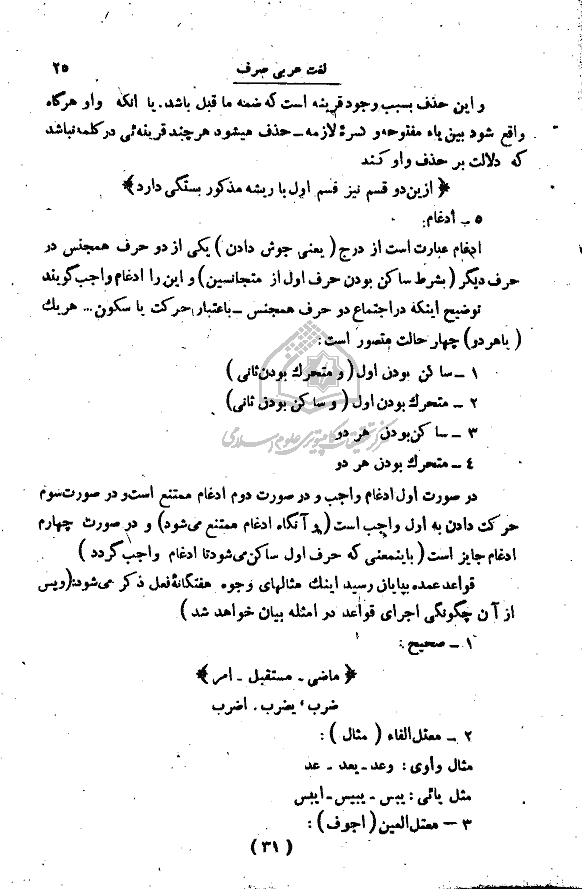 لغت عربی صرف ۲۵
و این حذف بسبب وجود قرینه است که ضمه ما قبل باشد. یا انکه واو هرگاه
واقع شود بین یاء مفتوحه و کسرهٔ لازمه ـ حذف میشود هرچند قرینه‌ئی در کلمه نباشد
که دلالت بر حذف واو کند
﴿ ازین دو قسم نیز قسم اول با ریشه مذکور بستگی دارد ﴾
۵ ـ ادغام:
ادغام عبارت است از درج ( یعنی جوش دادن ) یکی از دو حرف همجنس در
حرف دیگر ( بشرط ساکن بودن حرف اول از متجانسین ) و این را ادغام واجب گویند
توضیح اینکه در اجتماع دو حرف همجنس ـ باعتبار حرکت یا سکون ... هریك
( یا هر دو ) چهار حالت متصور است:
۱ ـ ساکن بودن اول ( و متحرك بودن ثانی )
۲ ـ متحرك بودن اول ( و ساکن بودن ثانی )
۳ ـ ساکن بودن هر دو
٤ ـ متحرك بودن هر دو
مرکز تحقیقات کامپیوتری علوم اسلامی
در صورت اول ادغام واجب و در صورت دوم ادغام ممتنع است و در صورت سوم
حرکت دادن به اول واجب است ( و آنگاه ادغام ممتنع می‌شود ) و در صورت چهارم
ادغام جایز است ( باینمعنی که حرف اول ساکن می‌شود تا ادغام واجب گردد )
قواعد عمده بپایان رسید اینك مثالهای وجوه هفتگانهٔ فعل ذکر می‌شود: ( وپس
از آن چگونگی اجرای قواعد در امثله بیان خواهد شد )
۱ ـ صحیح:
﴿ ماضی ـ مستقبل ـ امر ﴾
ضرب، یضرب. اضرب
۲ ـ معتل الفاء ( مثال ):
مثال واوی: وعد ـ یعد ـ عد
مثل یائی: یبس ـ یبیس ـ ایبس
۳ ـ معتل العین ( اجوف ):
( ۳۱ )